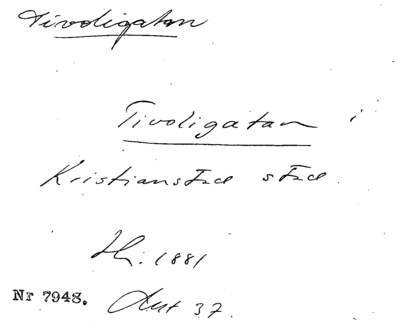 Tivoligatan
Tivoligatan i
Kristianstad stad.
1881
Nr 7948. Ant 37.